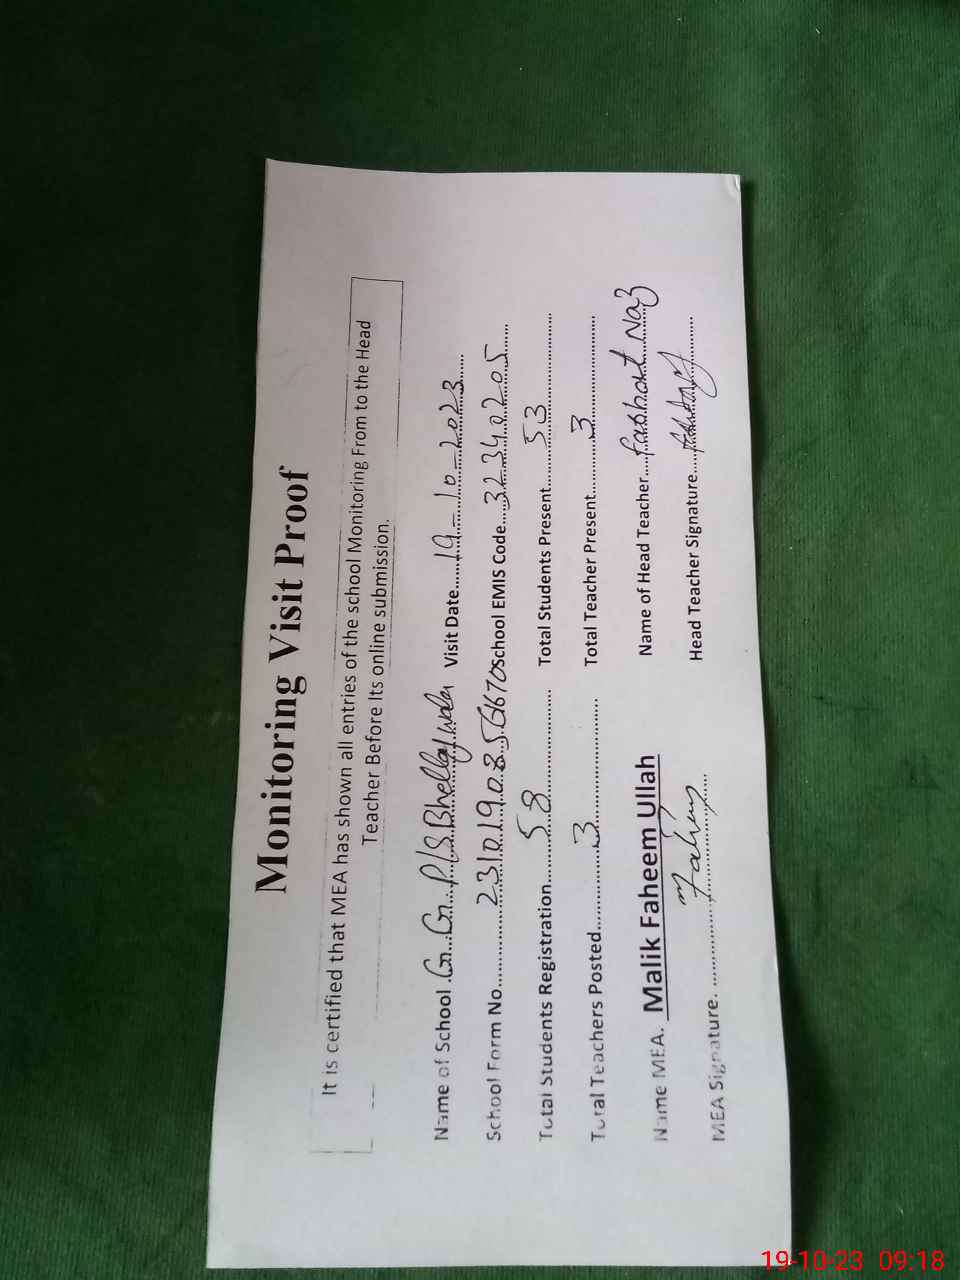 Monitoring Visit Proof
It is certified that MEA has shown all entries of the school Monitoring From to the Head
Teacher Before Its online submission.
Name of School. G.G.P/S Bhellay wala Visit Date......19-10-2023
School Form No............23101908561670 School EMIS Code.....32340205
Total Students Registration..........58.......... Total Students Present..........53
Total Teachers Posted..........3.......... Total Teacher Present..........3
Name MEA. Malik Faheem Ullah Name of Head Teacher.....Farhat Naz
MEA Signature. .......... Faheem Head Teacher Signature.....
19-10-23 09:18